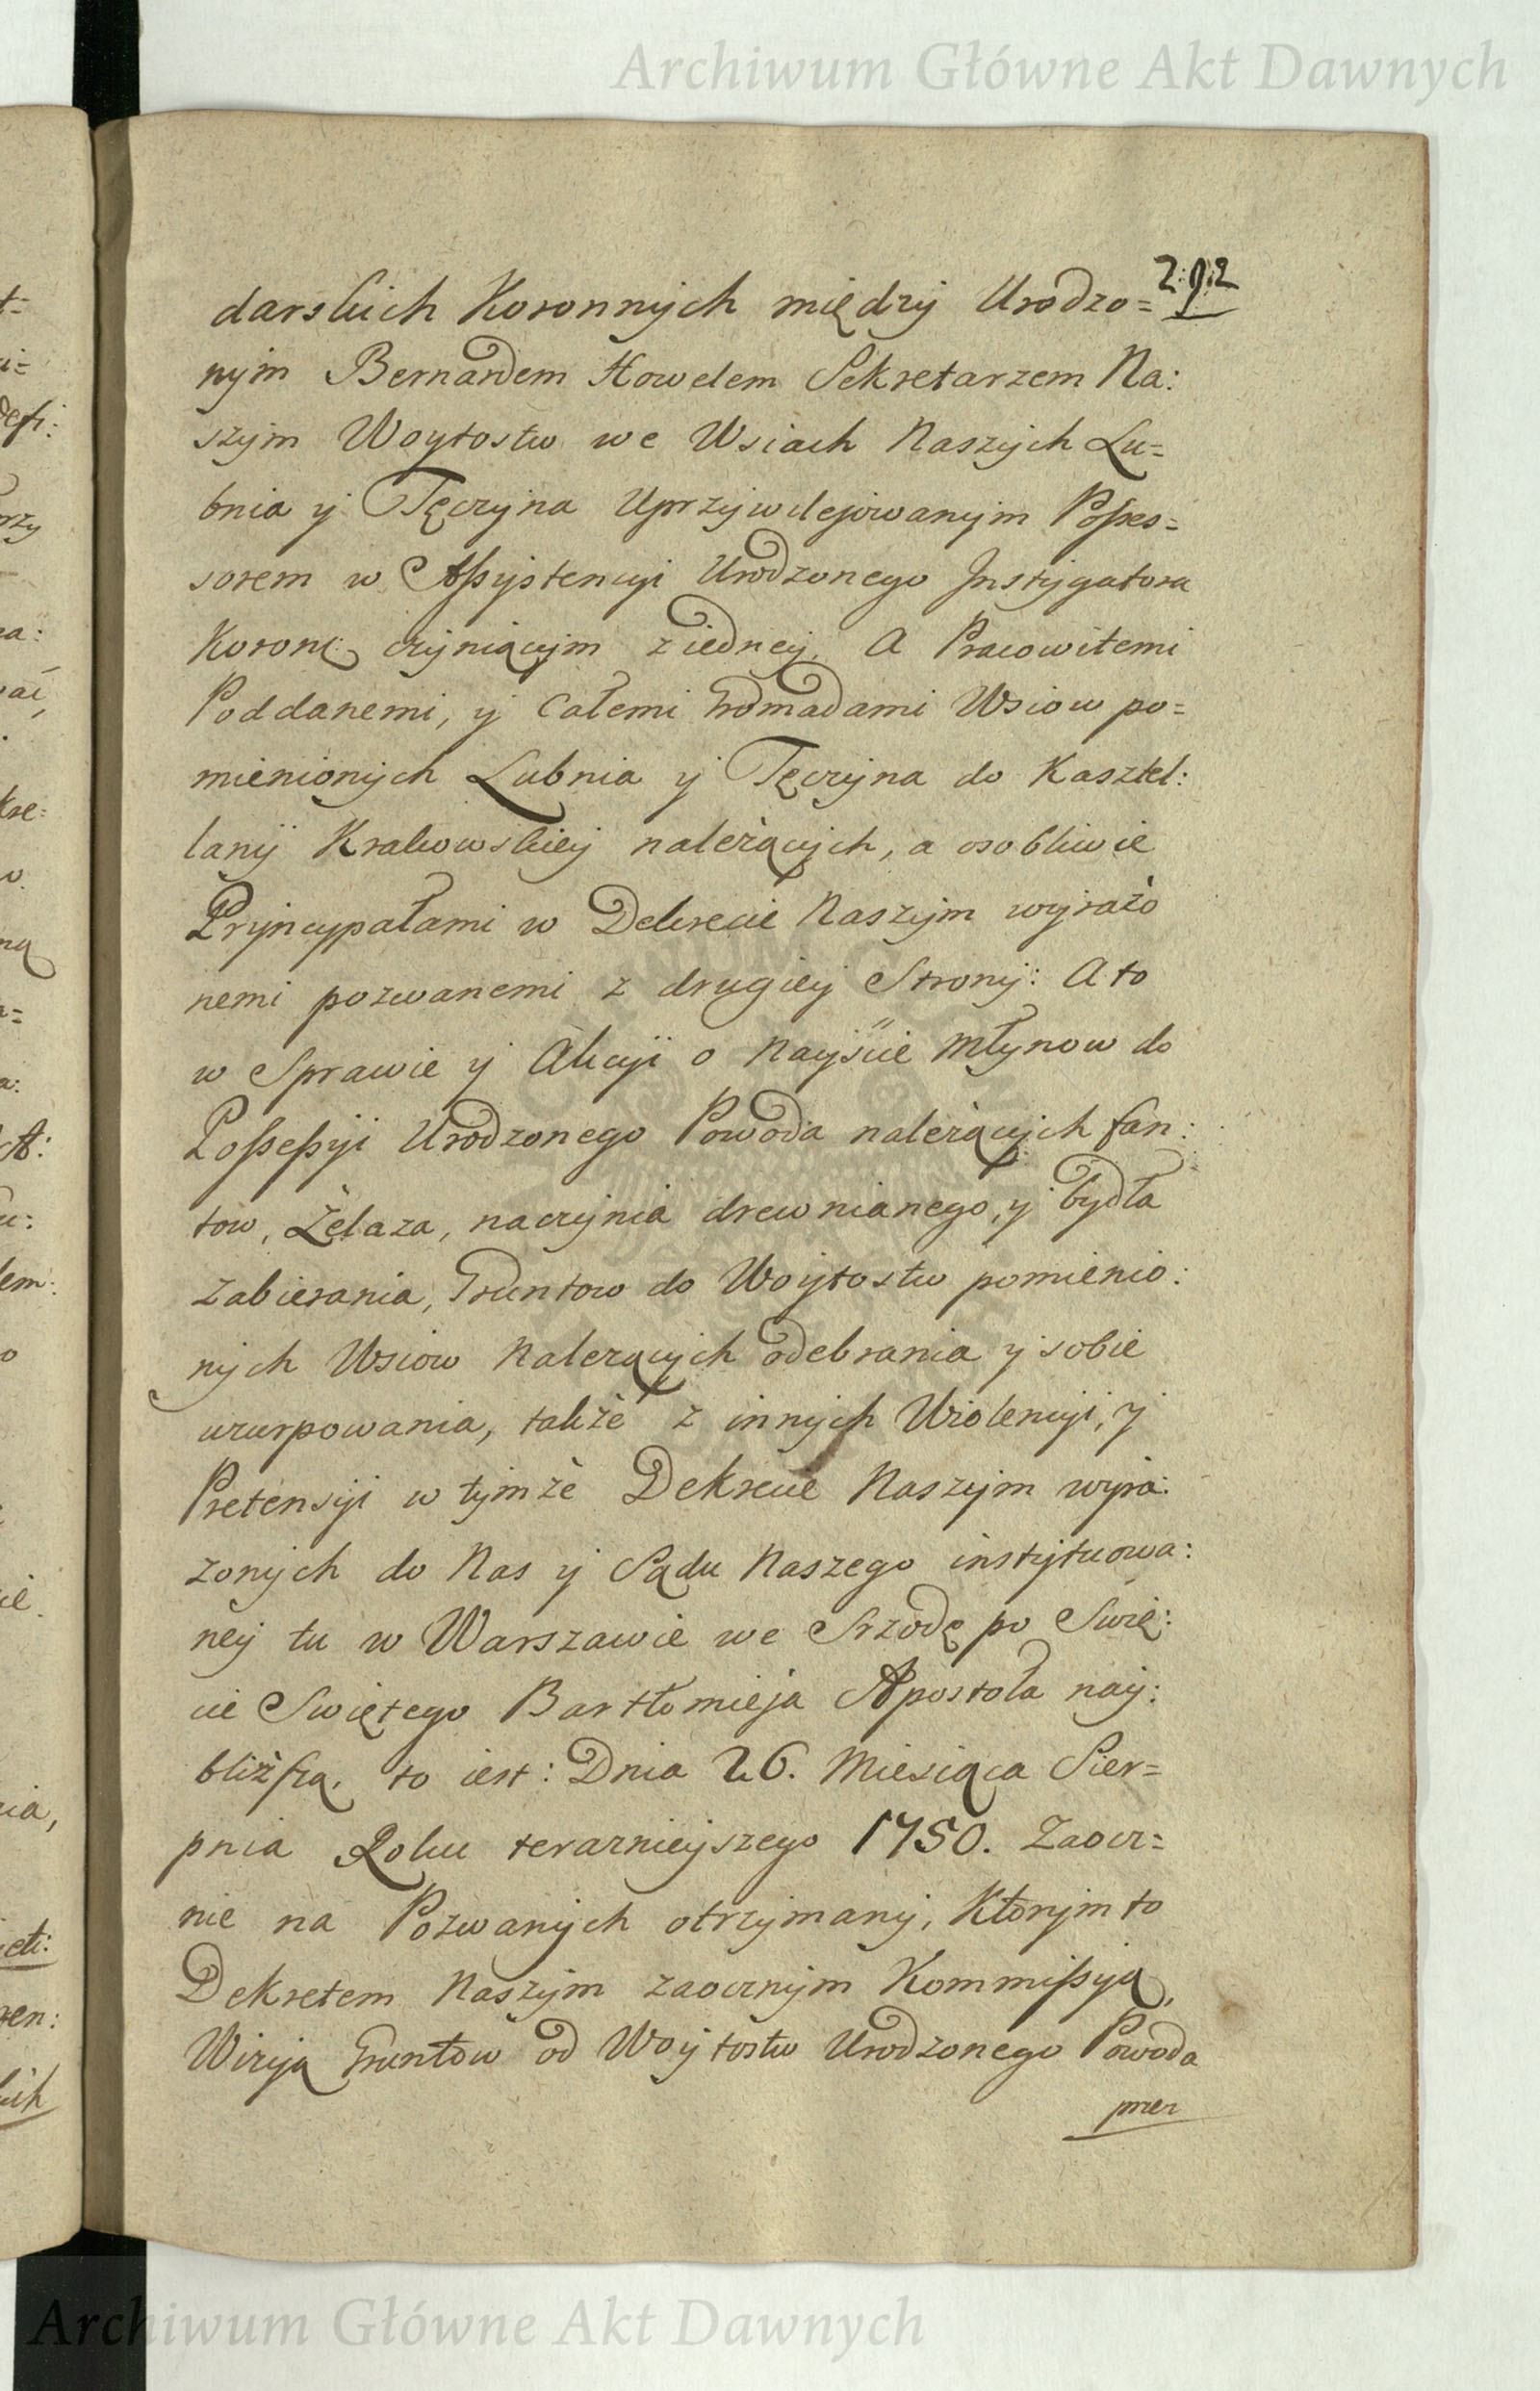 Archiwum Główne Akt Dawnych
292
darskich Koronnych między Urodzo=
nym Bernardem Howelem Sekretarzem Na:
szym Woytostw we Wsiach Naszych Lu=
bnia y Tęczyna Uprzywilejowanym Posses=
sorem w Assystencyi Urodzonego Instygatora
Koronę czyniącym z iedney, A Pracowitemi
Poddanemi, y Całemi Gromadami Wsiow po=
mienionych Lubnia y Tęczyna do Kasztel:
lanij Krakowskiey należących, a osobliwie
Pryncypałami w Dekrecie Naszym wyrażo
nemi pozwanemi z drugiey Strony: A to
w Sprawie y Akcyi o Nayście Młynow do
Possessyi Urodzonego Powoda należących fan:
tow, Żelaza, naczynia drewnianego, y bydła
zabierania, Gruntow do Woytostw pomienio:
nych Wsiow Należących odebrania y sobie
uzurpowania, także z innych Wiolencyi, y
Pretensyi w tymże Dekrecie Naszym wyra:
żonych do Nas y Sądu Naszego instytuowa:
ney tu w Warszawie we Srzodę po Swię:
cie Swiętego Bartłomieja Apostoła nay:
bliższą, to iest: Dnia 26. Miesiąca Sier=
pnia Roku terazniejszego 1750. Zaocz=
nie na Pozwanych otrzymany, Ktorym to
Dekretem Naszym zaocznym Kommissyą,
Wizyą Gruntow od Woytostw Urodzonego Powoda
przez
Archiwum Główne Akt Dawnych